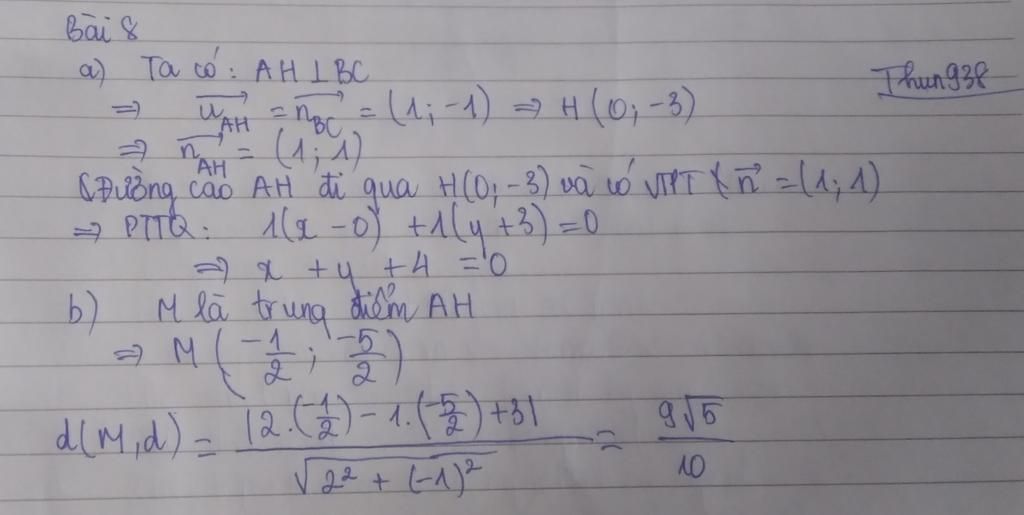 Bài 8
a) Ta có: AH ⊥ BC
Thun938
⇒ →u_AH = →n_BC = (1; -1) ⇒ H(0; -3)
⇒ →n_AH = (1; 1)
Đường cao AH đi qua H(0; -3) và có VTPT →n = (1; 1)
⇒ PTTQ: 1(x - 0) + 1(y + 3) = 0
⇒ x + y + 4 = 0
b) M là trung điểm AH
⇒ M(-1/2; -5/2)
d(M,d) = |2.(-1/2) - 1.(-5/2) + 3| / √(2² + (-1)²) = 9√5/10